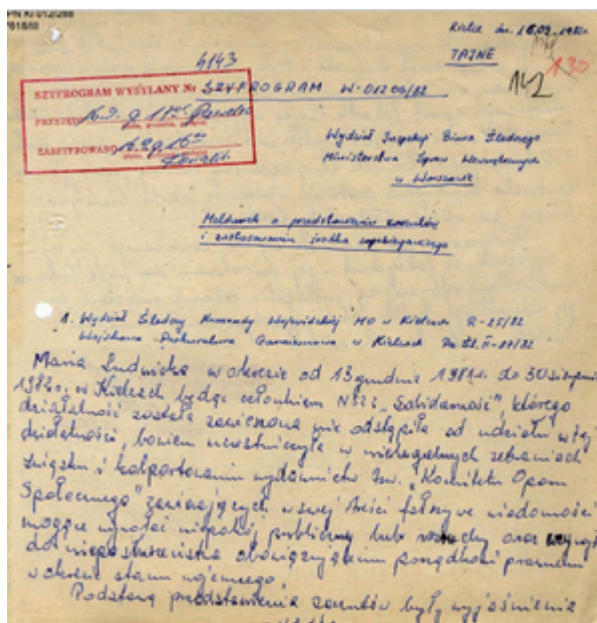 IPN Ki 012/288
7618/III
Kielce dn. 16.09.1982r.
TAJNE
130
142
4143
SZYFROGRAM WYSYŁANY Nr SZYFROGRAM W-01206/82
PRZYJĘTO 16.9. g. 11
ZASZYFROWANO 16.9 g. 16
Wydział Inspekcji Biura Śledczego
Ministerstwa Spraw Wewnętrznych
w Warszawie
Meldunek o przedstawieniu zarzutów
i zastosowaniu środka zapobiegawczego
1. Wydział Śledczy Komendy Wojewódzkiej MO w Kielcach R-25/82
Wojskowa Prokuratura Garnizonowa w Kielcach
Maria Ludwicka w okresie od 13 grudnia 1981r. do 30 sierpnia
1982r. w Kielcach będąc członkiem NSZZ „Solidarność", którego
działalność została zawieszona nie odstąpiła od udziału w tej
działalności, bowiem uczestniczyła w nielegalnych zebraniach
związku i kolportowaniu wydawnictw tzw. „Komitetu Oporu
Społecznego" zawierających w swej treści fałszywe wiadomości
mogące wywołać niepokój publiczny lub rozruchy oraz
do nieposłuszeństwa obowiązującemu porządkowi prawnemu
w okresie stanu wojennego.
Podstawą przedstawienia zarzutów były wyjaśnienia